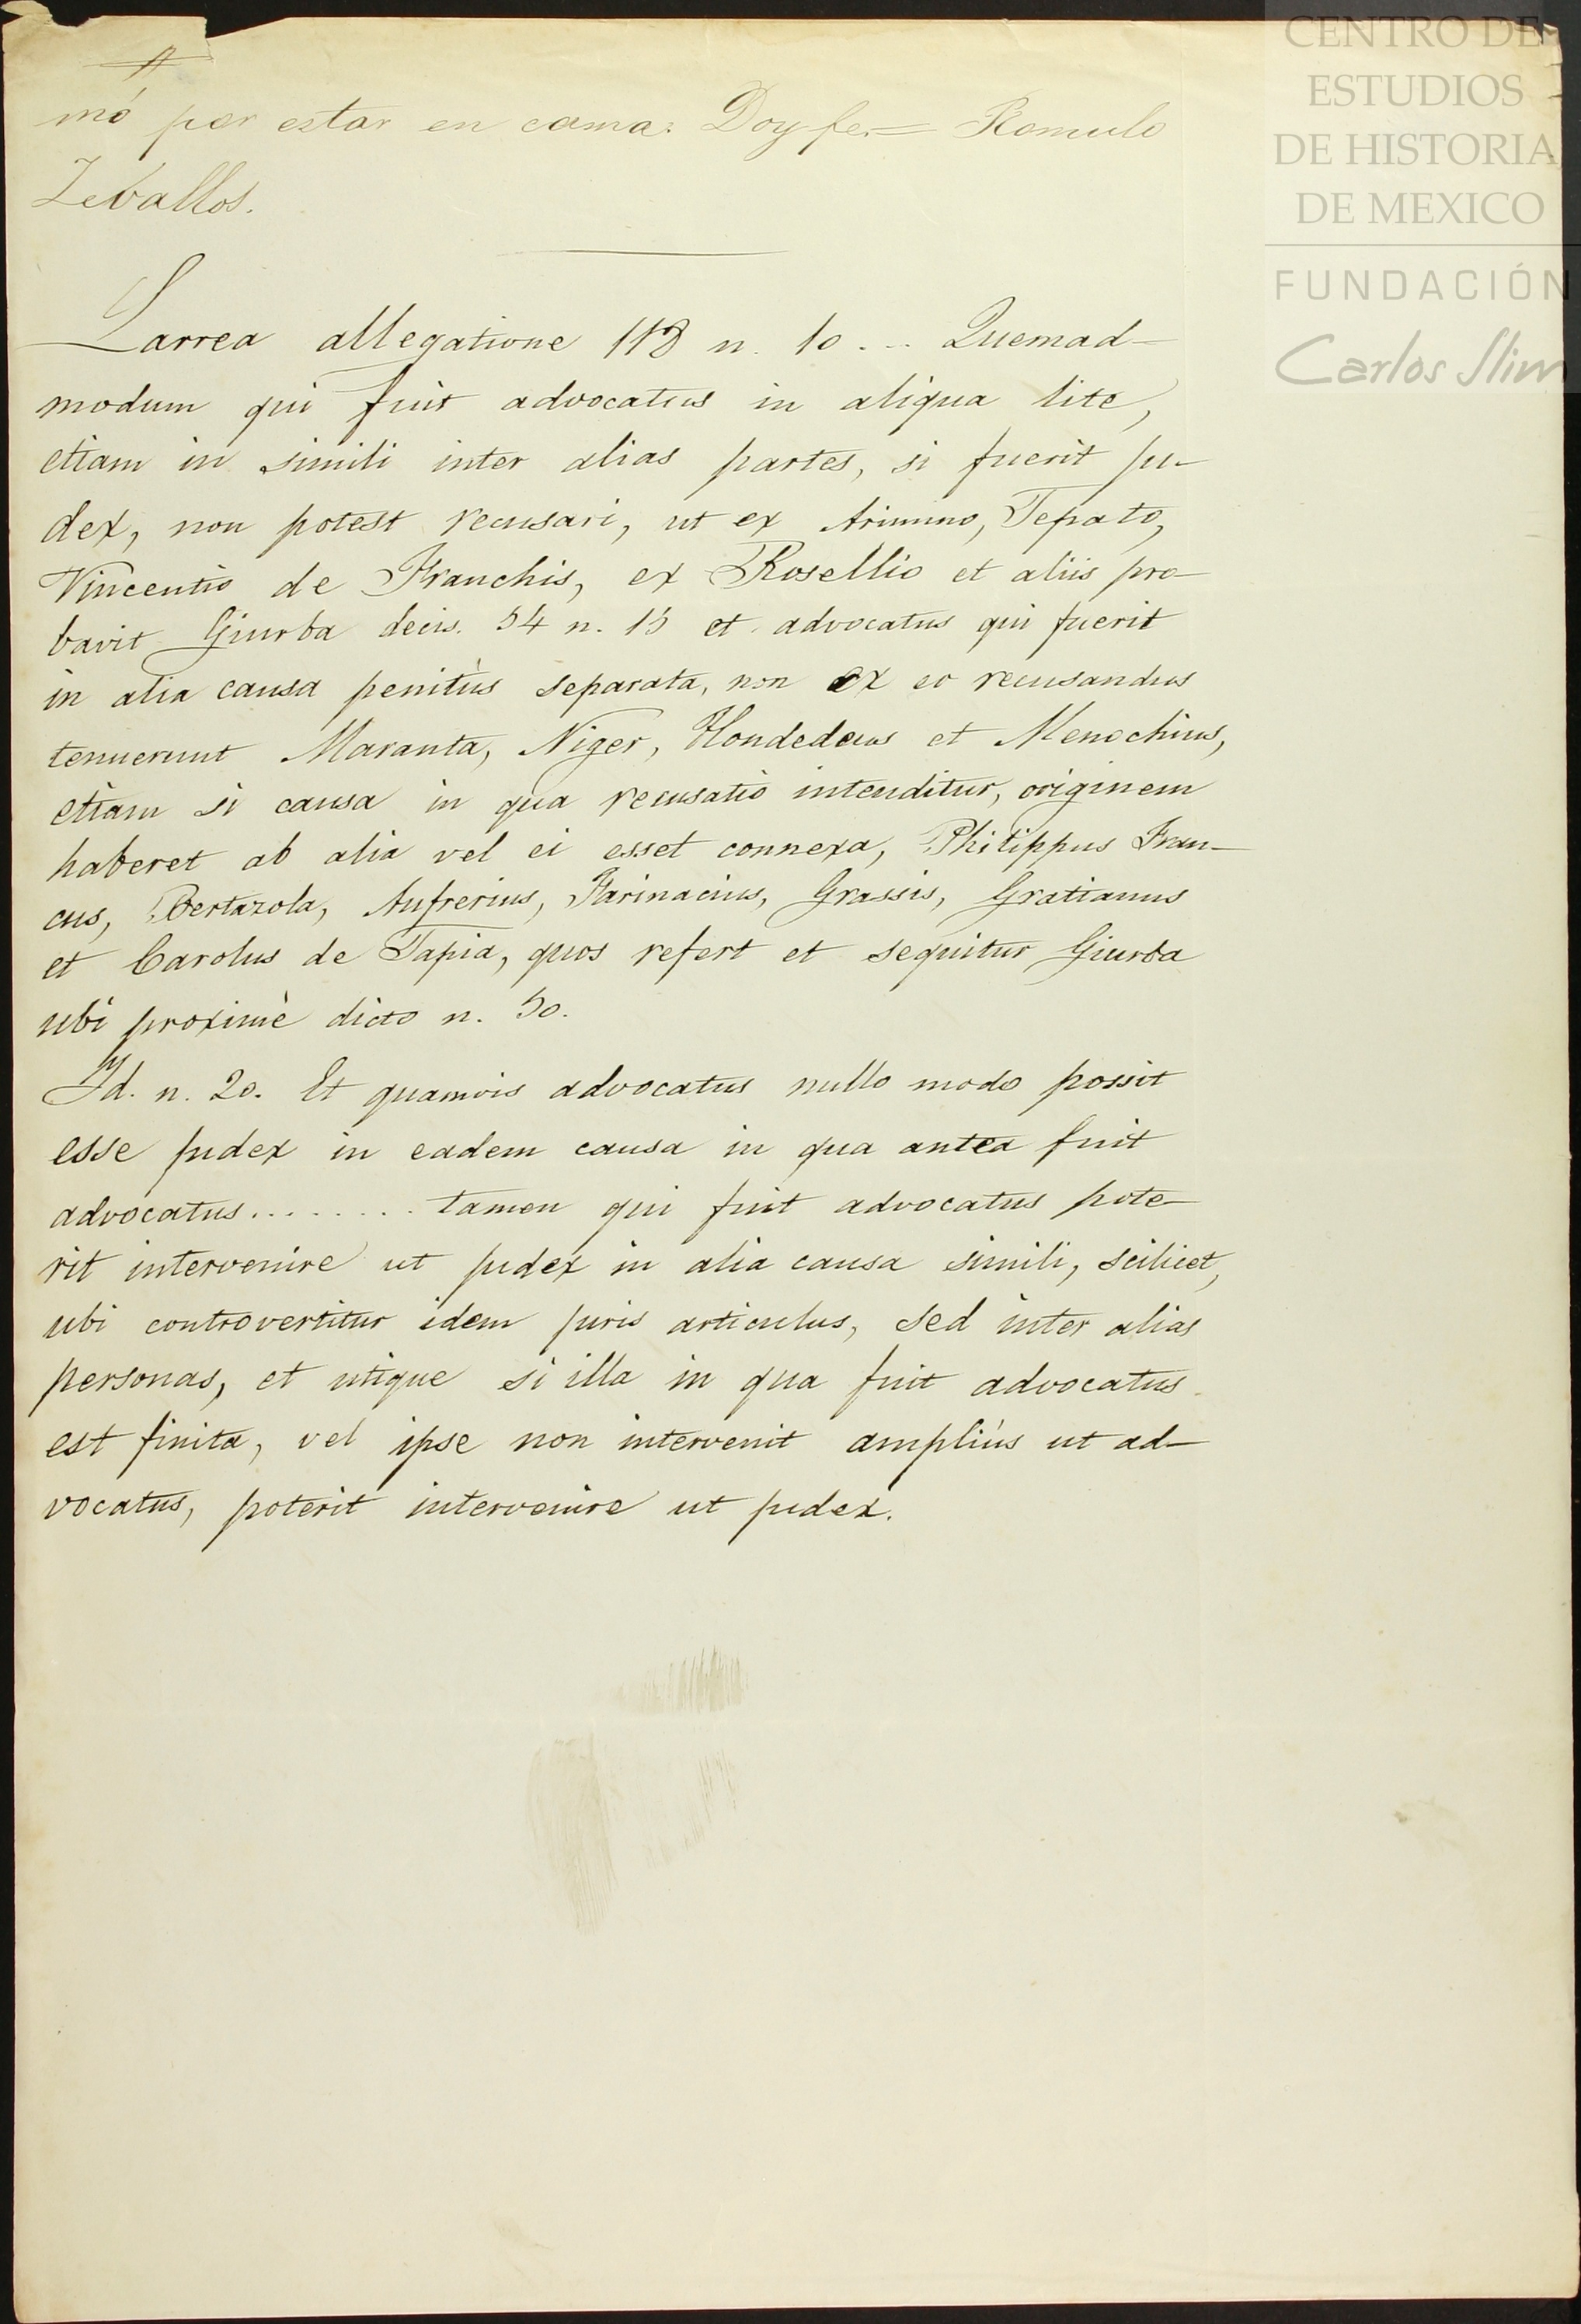 CENTRO DE
ESTUDIOS
DE HISTORIA
DE MEXICO
FUNDACIÓN
Carlos Slim
mó por estar en cama. Doy fe.= Romulo
Zeballos.
Larrea allegatione 118 n. 10... Quemad-
modum qui fuit advocatus in aliqua lite,
etiam in simili inter alias partes, si fuerit ju-
dex, non potest recusari, ut ex Arimino, Tepato,
Vincentio de Franchis, ex Rosellio et aliis pro-
bavit Giurba decis. 54 n. 15 et advocatus qui fuerit
in alia causa penitùs separata, non ex eo recusandus
tenuerunt Maranta, Niger, Hondedeus et Menochius,
etiam si causa in qua recusatio intenditur, originem
haberet ab alia vel ei esset connexa, Philippus Fran-
cus, Bertazola, Aufrerius, Farinacius, Grassis, Gratianus
et Carolus de Tapia, quos refert et sequitur Giurba
ubi proximè dicto n. 50.
Id. n. 20. Et quamvis advocatus nullo modo possit
esse judex in eadem causa in qua antea fuit
advocatus........ tamen qui fuit advocatus pote-
rit intervenire ut judex in alia causa simili, scilicet,
ubi controvertitur idem juris articulus, sed inter alias
personas, et utique si illa in qua fuit advocatus
est finita, vel ipse non intervenit ampliùs ut ad-
vocatus, poterit intervenire ut judex.